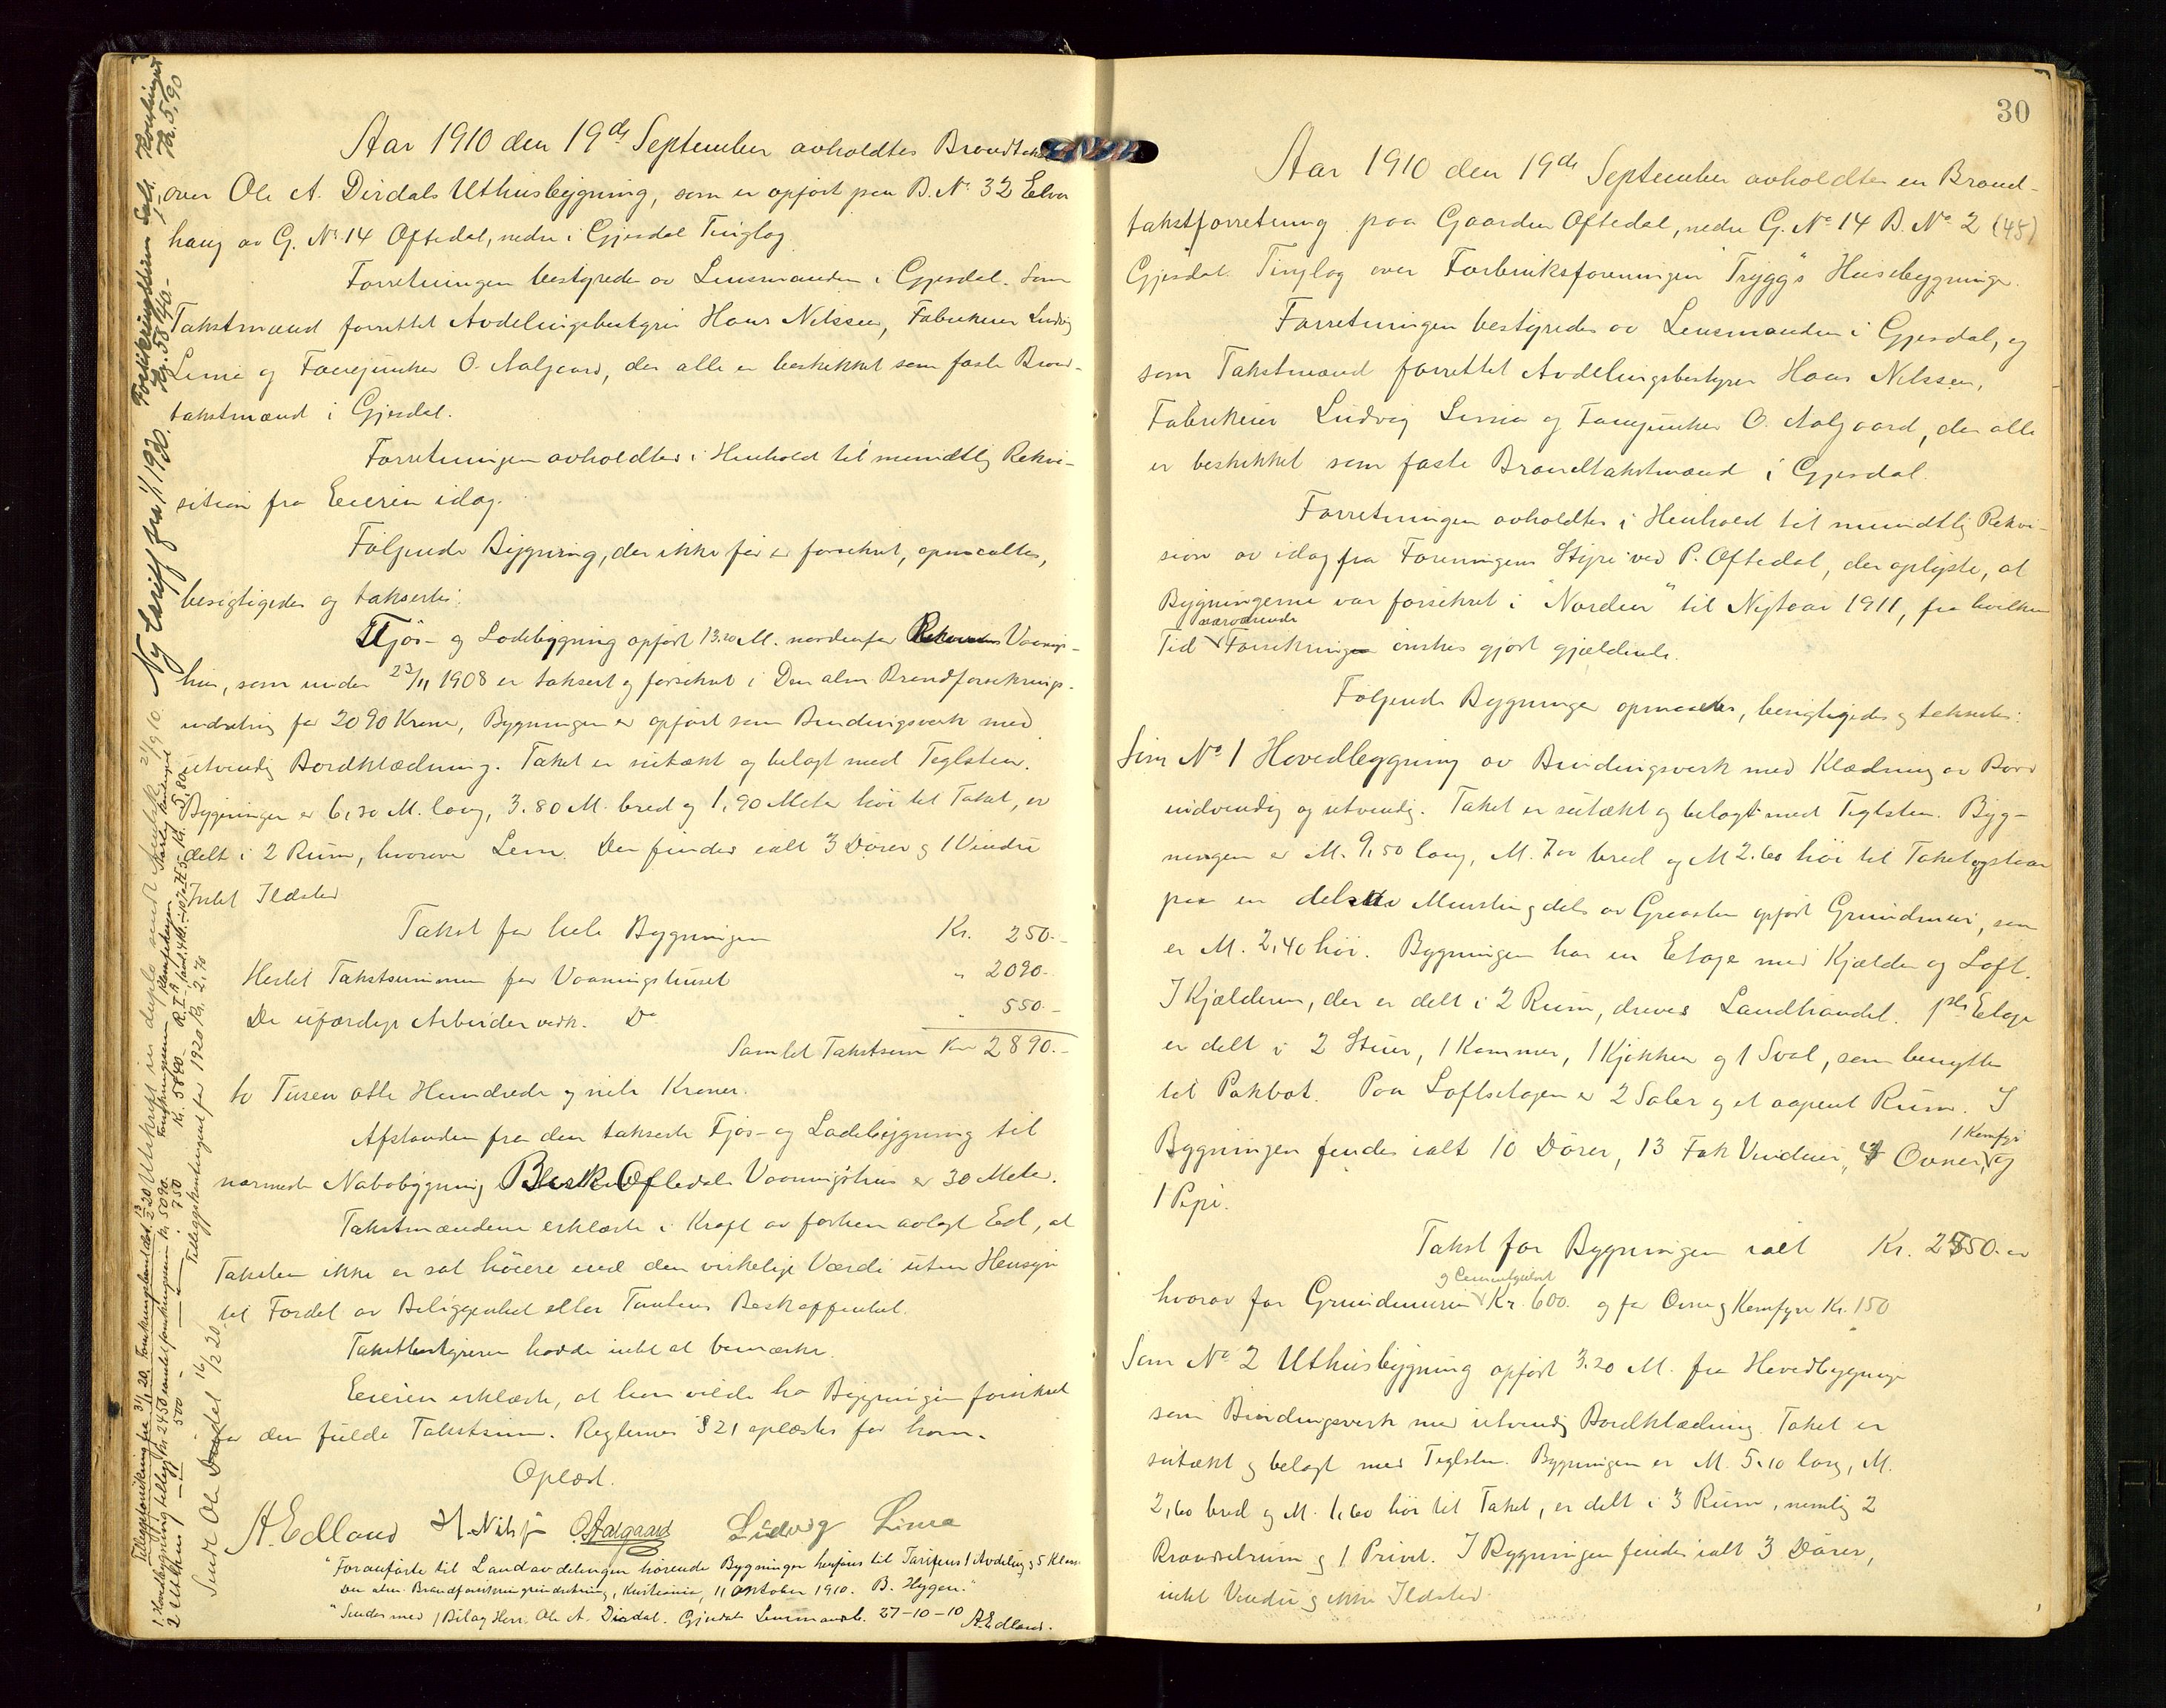 Aar 1910 den 19de September avholdtes Brandtakst
over Ole A. Dirdals Uthusbygning, som er opført paa B.No 32 Elva
haug av G. No 14 Oftedal, nedre i Gjesdal Tinglag
Forretningen bestyredes av Lensmanden i Gjesdal. Som
Takstmænd forrettet Avdelingsbestyrer Hans Nilssen, Fabrikeier Ludvig
Lima og Fanejunker O. Aalgaard, der alle er beskikket som faste Brand-
takstmænd i Gjesdal.
Forretningen avholdtes i Henhold til mundtlig Rekvi-
sition fra Eieren idag.
Følgende Bygning, der ikke før er forsikret, opmaaltes,
besigtigedes og takseres:
Fjøs- og Ladebygning opført 13.20 M. nordenfor Rekvirentens Vaanings-
hus, som under 23/11 1908 er taksert og forsikret i Den alm. Brandforsikrings-
indretning for 2090 Kroner, Bygningen er opført som Bindingsverk med
utvendig Bordklædning. Taket er sutækt og belagt med Teglsten.
Bygningen er 6,30 M. lang, 3.80 M. bred og 1,90 Meter høi til Taket, er
delt i 2 Rum, hvorover Lem. Der findes ialt 3 Dører og 1 Vindu
Intet Ildsted
Takst for hele Bygningen Kr. 250.-
Hertil Takstsummen for Vaaningshuset " 2090.-
De ufærdige Arbeider vedk. Do " 550.-
Samlet Takstsum Kr 2890.-
to Tusen otte Hundrede og nitti Kroner.
Afstanden fra den takserte Fjøs- og Ladebygning til
nærmeste Nabobygning Oftedals Vaaningshus er 30 Meter.
Takstmændene erklærte i Kraft av forhen avlagt Ed, at
Taksten ikke er sat høiere end den virkelige Værdi uten Hensyn
til Fordel av Beliggenhet eller Tomtens Beskaffenhet.
Takstbestyreren hadde intet at bemærke.
Eieren erklærte, at han vilde ha Bygningen forsikret
for den fulde Takstsum. Reglernes § 21 oplæstes for ham.
Oplæst.
A. Edland H. Nilssen O. Aalgaard Ludvig Lima
"Foranførte til Landavdelingen hørende Bygninger henføres til Tarifens 1 Avdeling 5 Klasse
Den alm. Brandforsikringsindretning, Kristiania, 11 Oktober 1910. B. Hygen."
"Sendes med 1 Bilag Herr. Ole A. Dirdal. Gjesdal Lensmandsb. 27-10-10 A. Edland.
Ny tariff fra 1/1 1920. Forsikringstum Kr. 5840.- Halv. Kontingent Kr. 5,90
Utskrift in duplo sendt 21/9 10.
Tilleggsforsikring fra 31/1 20.
1 Hovedbygning tillegg kr 2450 samlet forsikringssum kr 5090
2 Uthus 500 - 750
Kr. 5840.-
Tilleggskontingent for 1920 kr. 2,70
Sendt Ole Dirdal 16/2 20
30
Aar 1910 den 19de September avholdtes en Brand-
takstforretning paa Gaarden Oftedal, nedre G. No 14 B. No 2 (48)
Gjesdal Tinglag over Forbruksforeningen "Trygg"s Husebygninger.
Forretningen bestyredes av Lensmanden i Gjesdal, og
som Takstmænd forrettet Avdelingsbestyrer Hans Nilssen,
Fabrikeier Ludvig Lima og Fanejunker O. Aalgaard, der alle
er beskikket som faste Brandtakstmænd i Gjesdal.
Forretningen avholdtes i Henhold til mundtlig Rekvi-
sion av idag fra Foreningens Styre ved P. Oftedal, der oplyste, at
Bygningerne var forsikret i "Norden" til Nytaar 1911, fra hvilken
Tid nærværende Forsikring ønskes gjort gjældende.
Følgende Bygninger opmaaltes, besigtigedes og takseres:
Som No 1 Hovedbygning av Bindingsverk med Klædning av Bord
indvendig og utvendig. Taket er sutækt og belagt med Teglsten. Byg-
ningen er M. 9,50 lang, M. 7.00 bred og M 2.60 høi til Taket og staar
paa en dels av Mursten og dels av Graasten opført Grundmur, som
er M. 2,40 høi. Bygningen har en Etage med Kjælder og Loft.
I Kjælderen, der er delt i 2 Rum, drives Landhandel. 1ste Etage
er delt i 2 Stuer, 1 Kammer, 1 Kjøkken og 1 Sval, som benyttes
til Pakbod. Paa Loftsetagen er 2 Saler og et aapent Rum. I
Bygningen findes ialt 10 Dører, 13 Fak Vinduer, Ovner, 1 Komfyr og
1 Pipe.
Takst for Bygningen ialt Kr. 2550.-
hvorav for Grundmuren og Cementgulvet Kr. 600. og for Ovne og Komfyr Kr. 150
Som No 2 Uthusbygning opført 3.20 M. fra Hovedbygningen
som Bindingsverk med utvendig Bordklædning. Taket er
sutækt og belagt med Teglsten. Bygningen er M. 5,10 lang, M.
2,60 bred og M. 1,60 høi til Taket, er delt i 3 Rum, nemlig 2
Brændselrum og 1 Privet. I Bygningen findes ialt 3 Dører,
intet Vindu og ikke Ildsted.